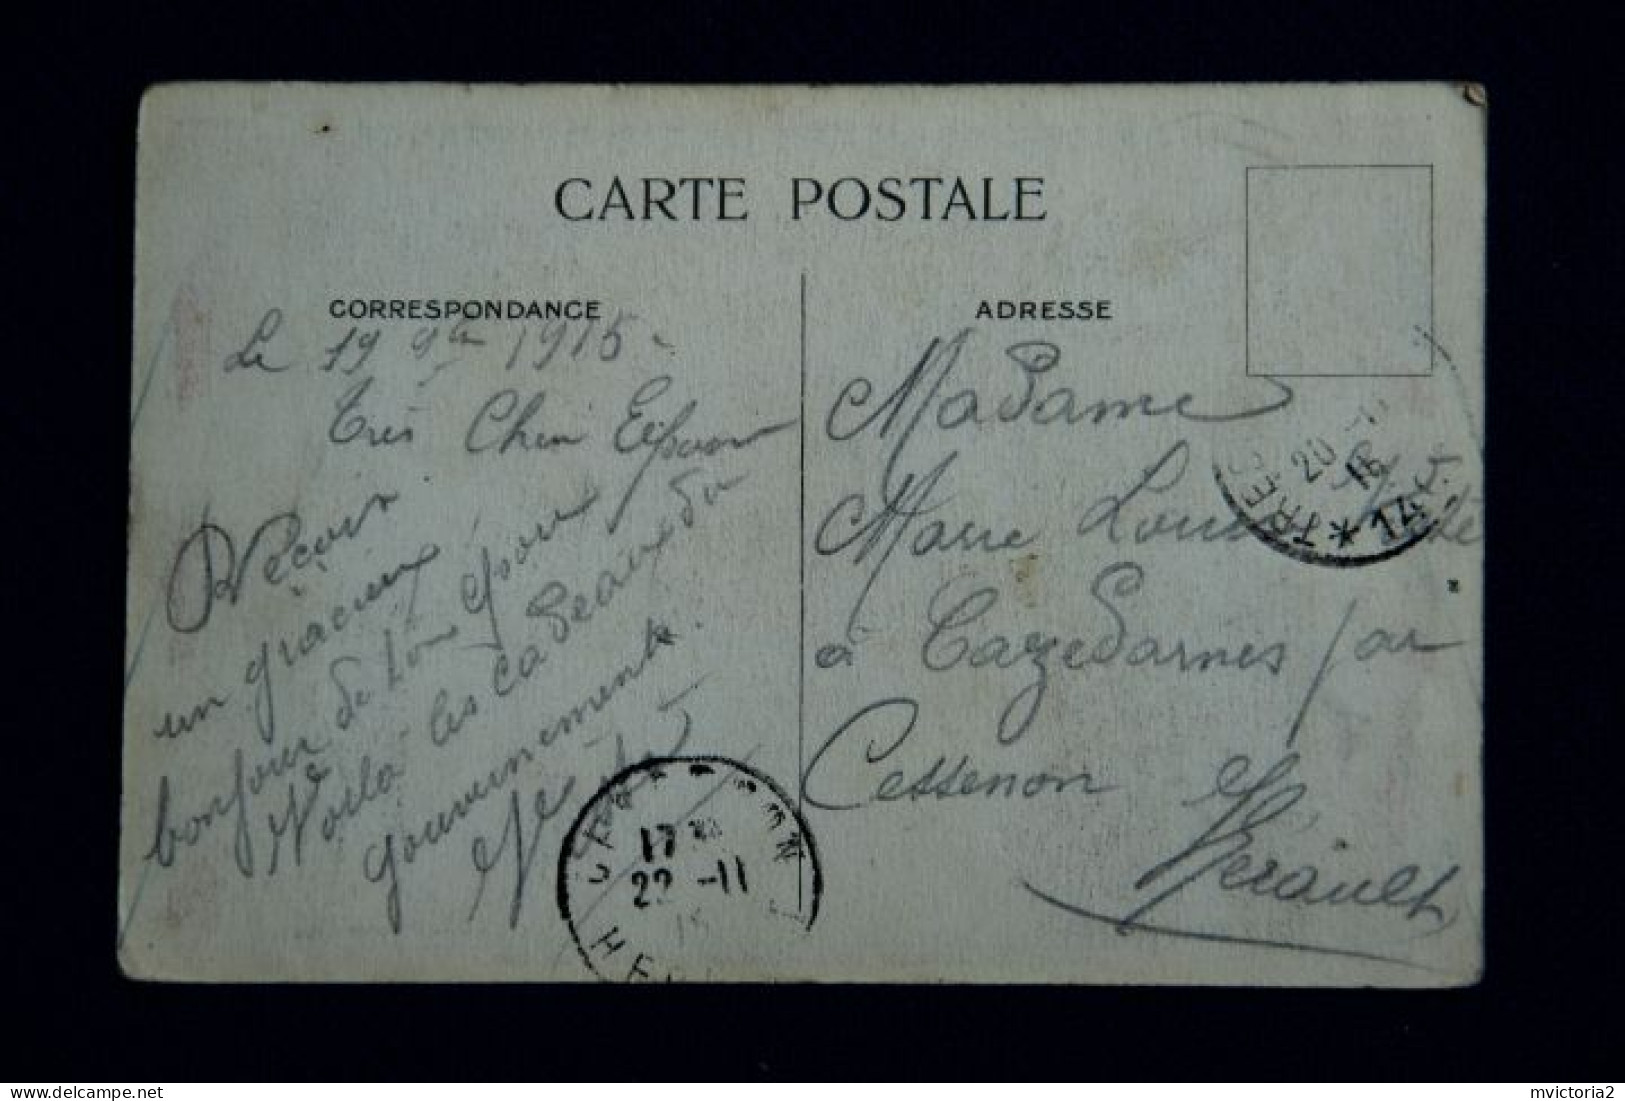 CARTE POSTALE
CORRESPONDANCE
Le 19 9bre 1915
Très Cher
Reçois
un gracieux
bonjour de ton
Voila les cadeaux du
gouvernement.
ADRESSE
Madame
Marie Louise
à Cazedarnes par
Cessenon
Hérault
TRES
20
15
* 147
17
22 -11
15
HE
mvictoria2